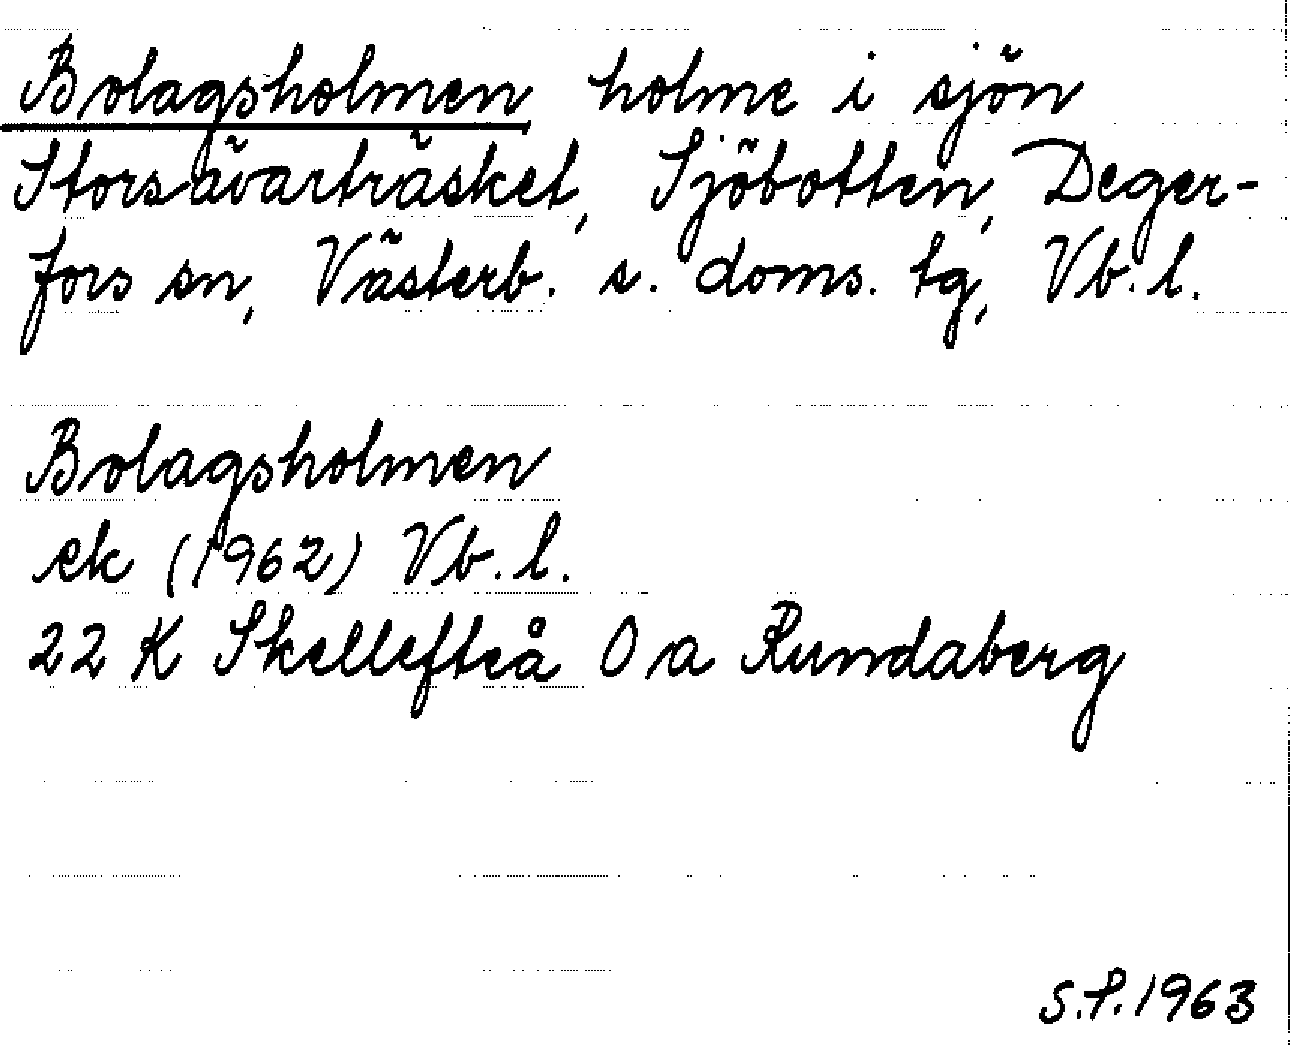 Bolagsholmen holme i sjön
Storsävarträsket, Sjöbotten, Deger-
fors sn, Västerb. s. doms. tg, Vb. l.
Bolagsholmen
ek (1962) Vb. l.
22 K Skellefteå 0 a Rundaberg
S.P. 1963